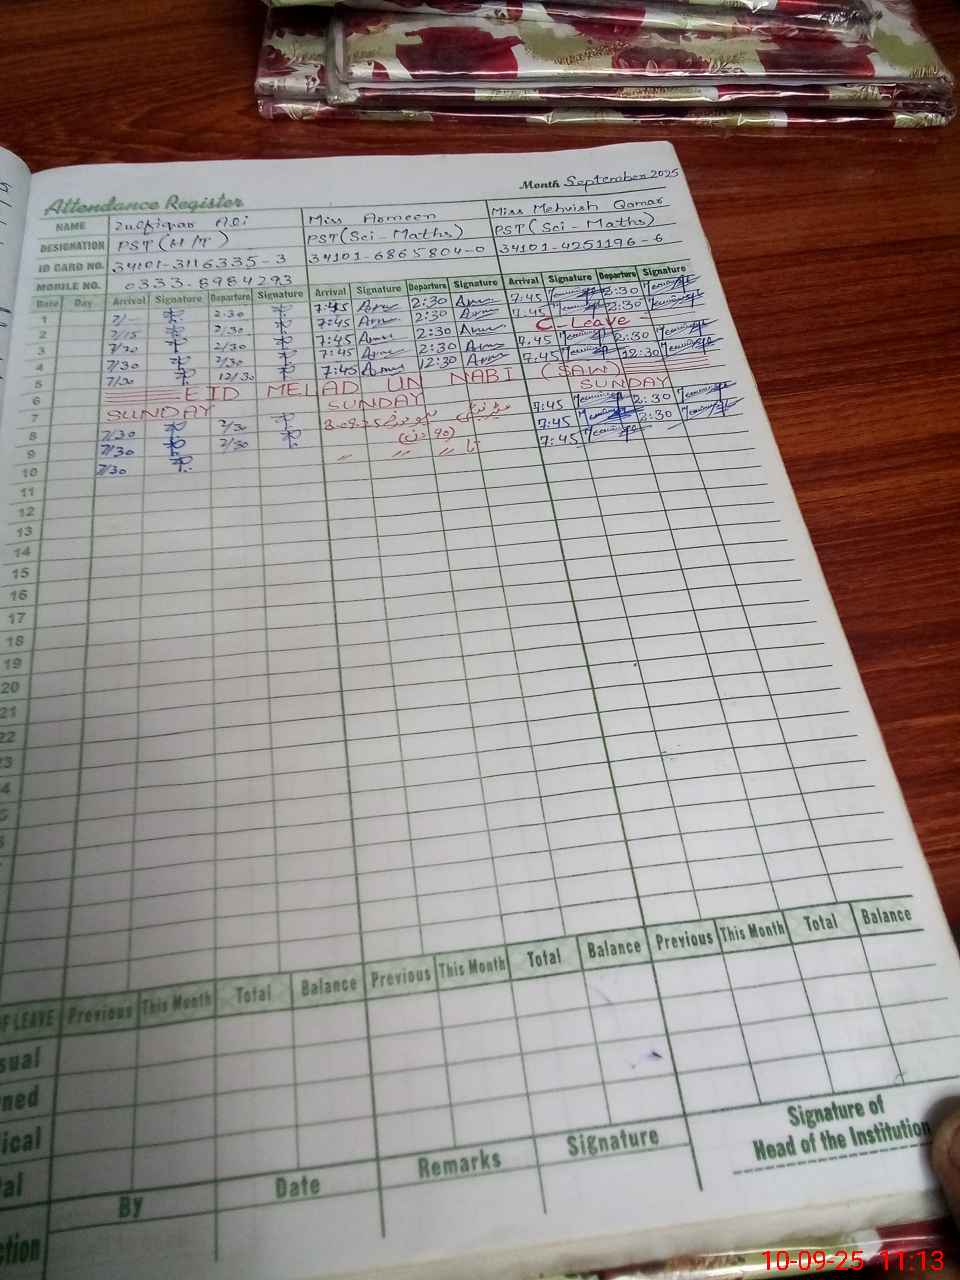 Month September 2025
Attendance Register
NAME Zulfiqar Ali Miss Asmeen Miss Mehvish Qamar
DESIGNATION PST (H/T) PST (Sci - Maths) PST (Sci - Maths)
ID CARD NO. 34101-3116335-3 34101-6865804-0 34101-4251196-6
MOBILE NO. 0333-8984293
Date Day Arrival Signature Departure Signature Arrival Signature Departure Signature Arrival Signature Departure Signature
1 2:30 7:45 2:30 7:45 2:30
2 7/15 2/30 7:45 2:30 7:45 2:30
3 7/20 2/30 7:45 2:30 C-Leave
4 7/30 2/30 7:45 2:30 7:45 2:30
5 7/30 12/30 7:45 12:30 7:45 12:30
6 EID MELAD UN NABI (SAW)
7 SUNDAY SUNDAY SUNDAY
8 7/30 2/30 7:45 2:30
9 7/30 2/30 (90 دن) 7:45 2:30
10 7/30 〃 〃 〃 تا 7:45
11
12
13
14
15
16
17
18
19
20
21
22
23
OF LEAVE Previous This Month Total Balance Previous This Month Total Balance Previous This Month Total Balance
sual
ned
ical
tal
ction By Date Remarks Signature
Signature of
Head of the Institution
10-09-25 11:13